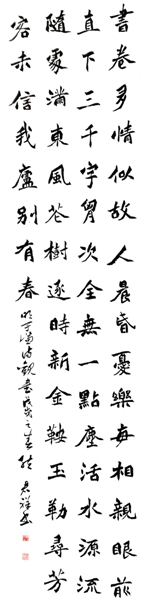 書卷多情似故人晨昏憂樂每相親眼前
直下三千字胷次全無一點塵活水源流
隨處滿東風花樹逐時新金鞍玉勒尋芳
客未信我廬別有春 明于謙詩觀書戊戌之 君祥書